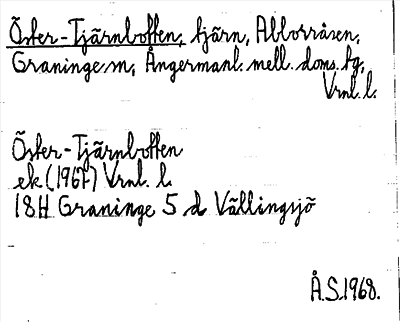 Öster-Tjärnbotten, tjärn, Abborråsen,
Graninge sn, Ångermanl. mell. doms. fg,
Vrnl. l.
Öster-Tjärnbotten
ek (1967) Vrnl. l.
18H Graninge 5 d Vällingsjö
Å.S. 1968.